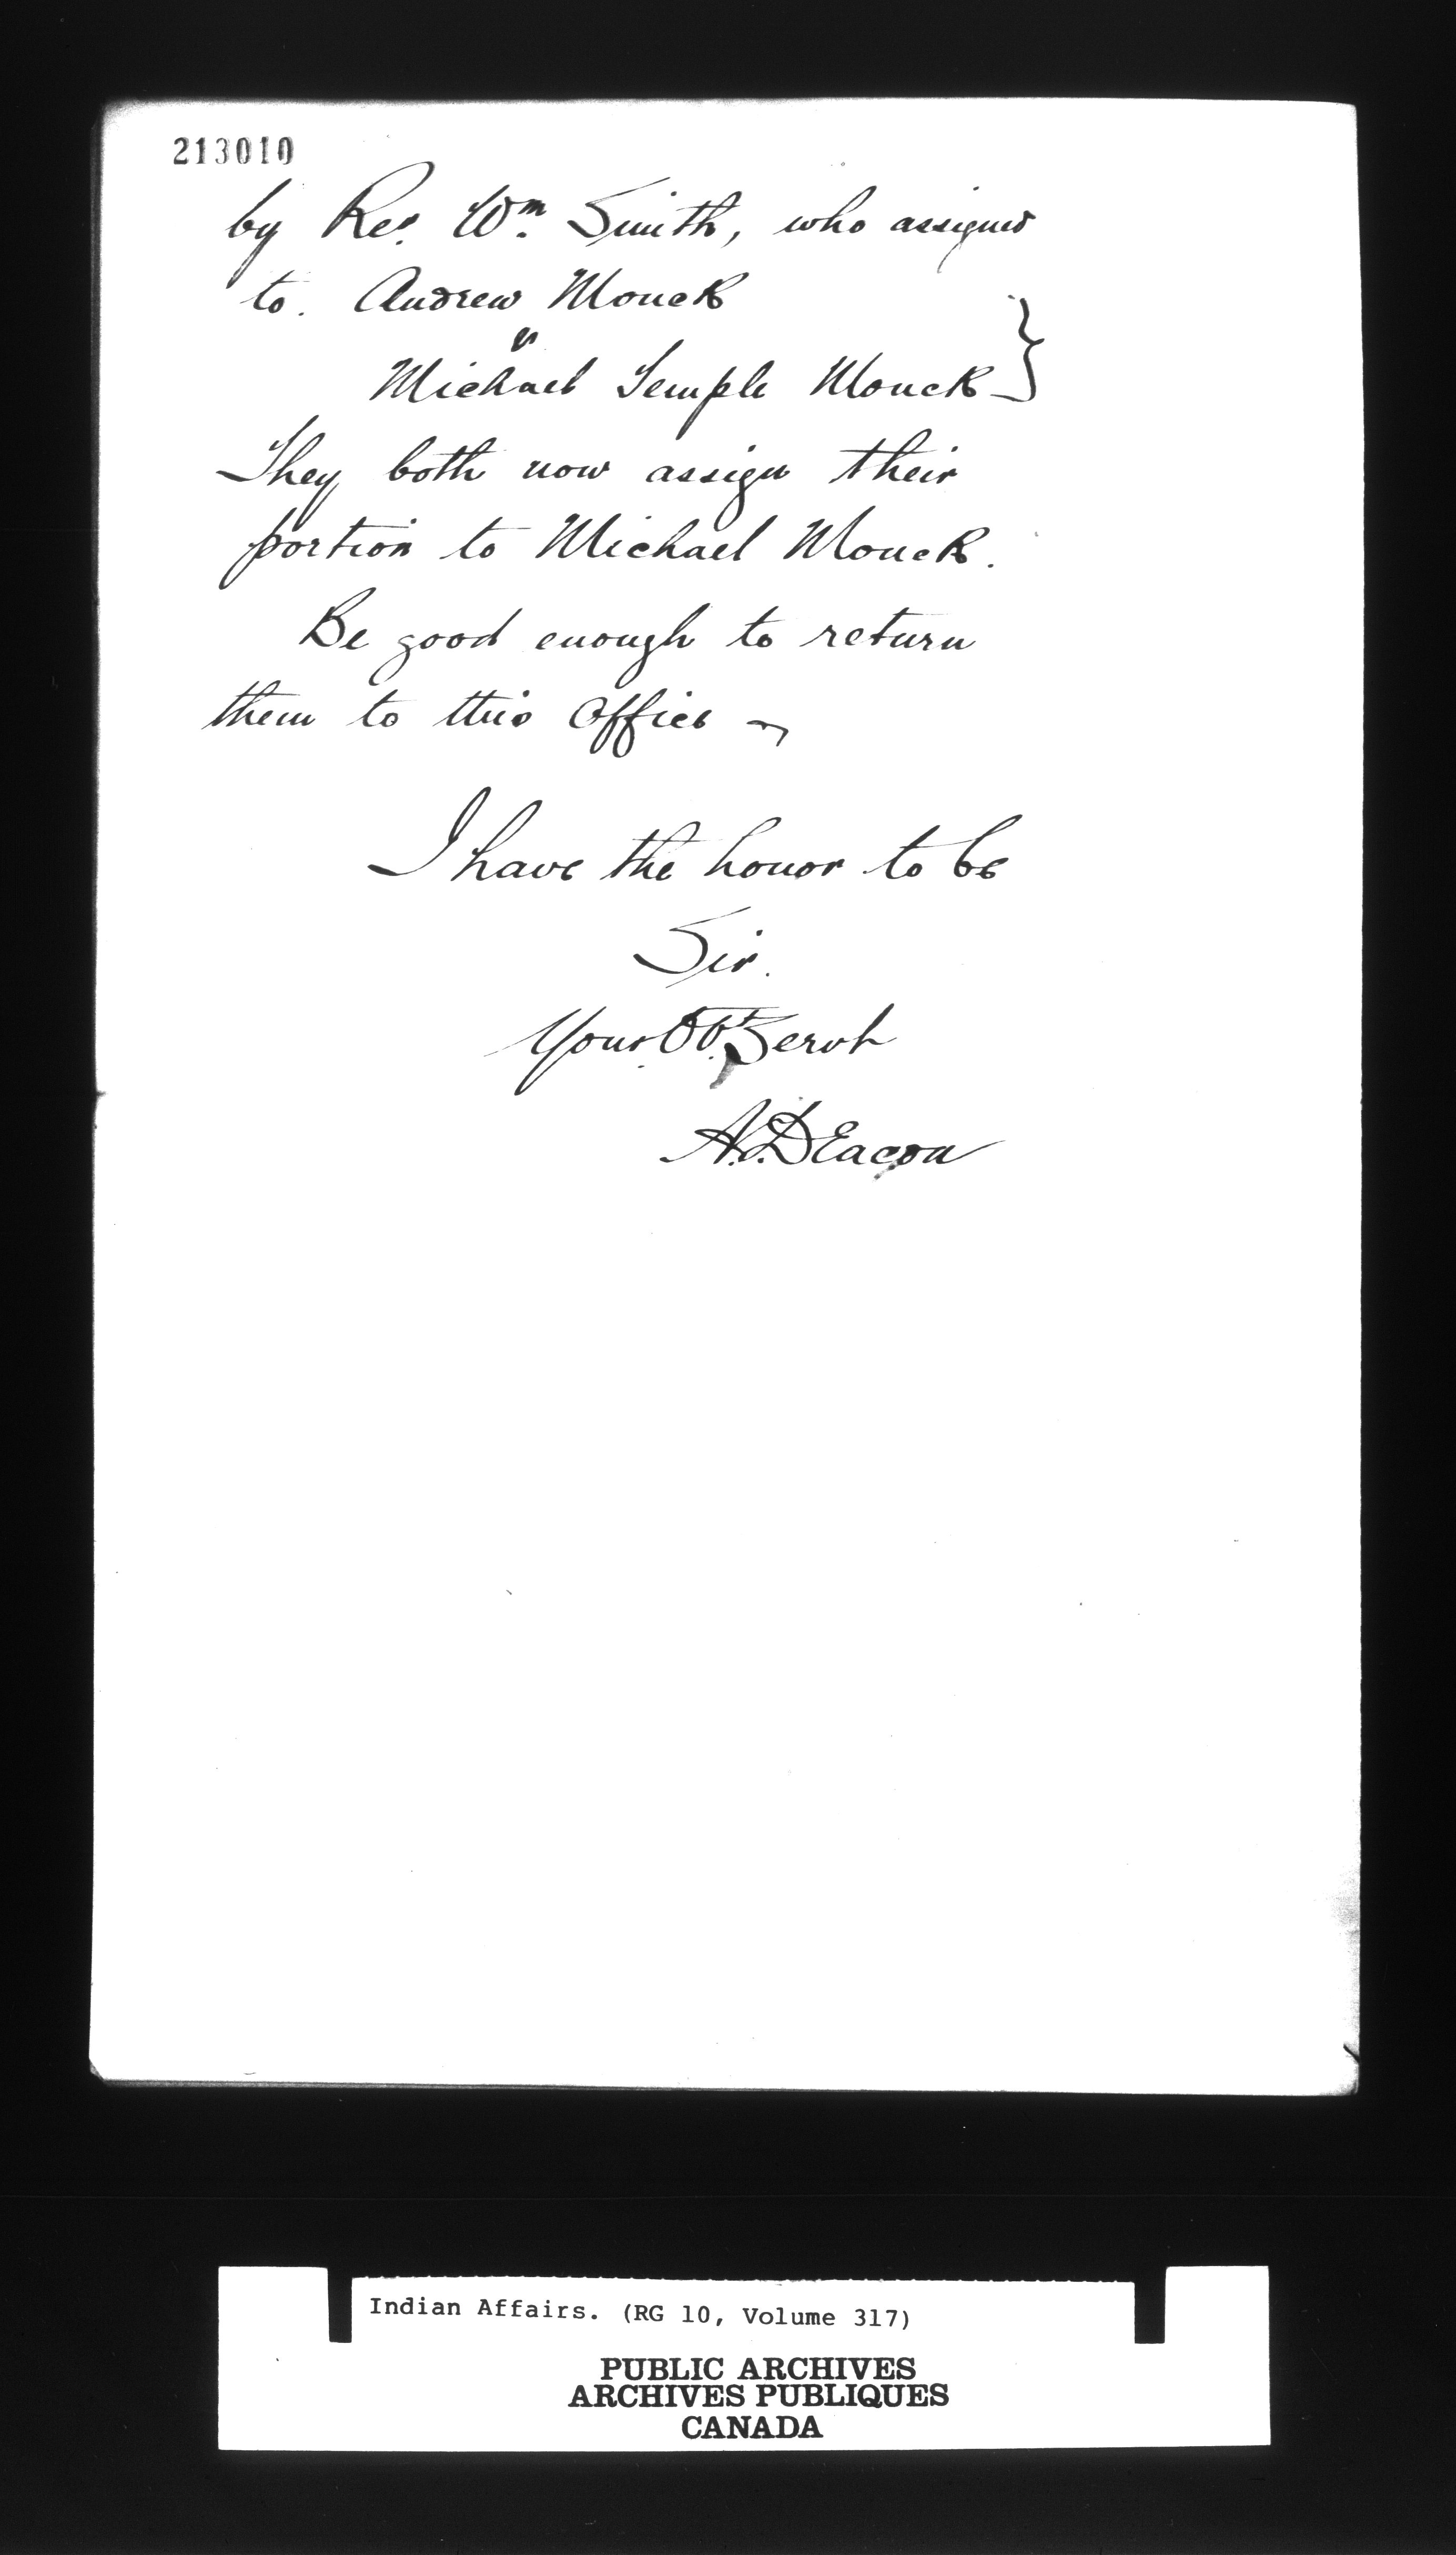 213010
by Rev. Wm. Smith, who assigned
to. Andrew Monck
"
Michael Semple Monck }
They both now assign their
portion to Michael Monck.
Be good enough to return
them to this office
I have the honor to be
Sir.
Your Ob.t Servt
A. Deacon
Indian Affairs. (RG 10, Volume 317)
PUBLIC ARCHIVES
ARCHIVES PUBLIQUES
CANADA